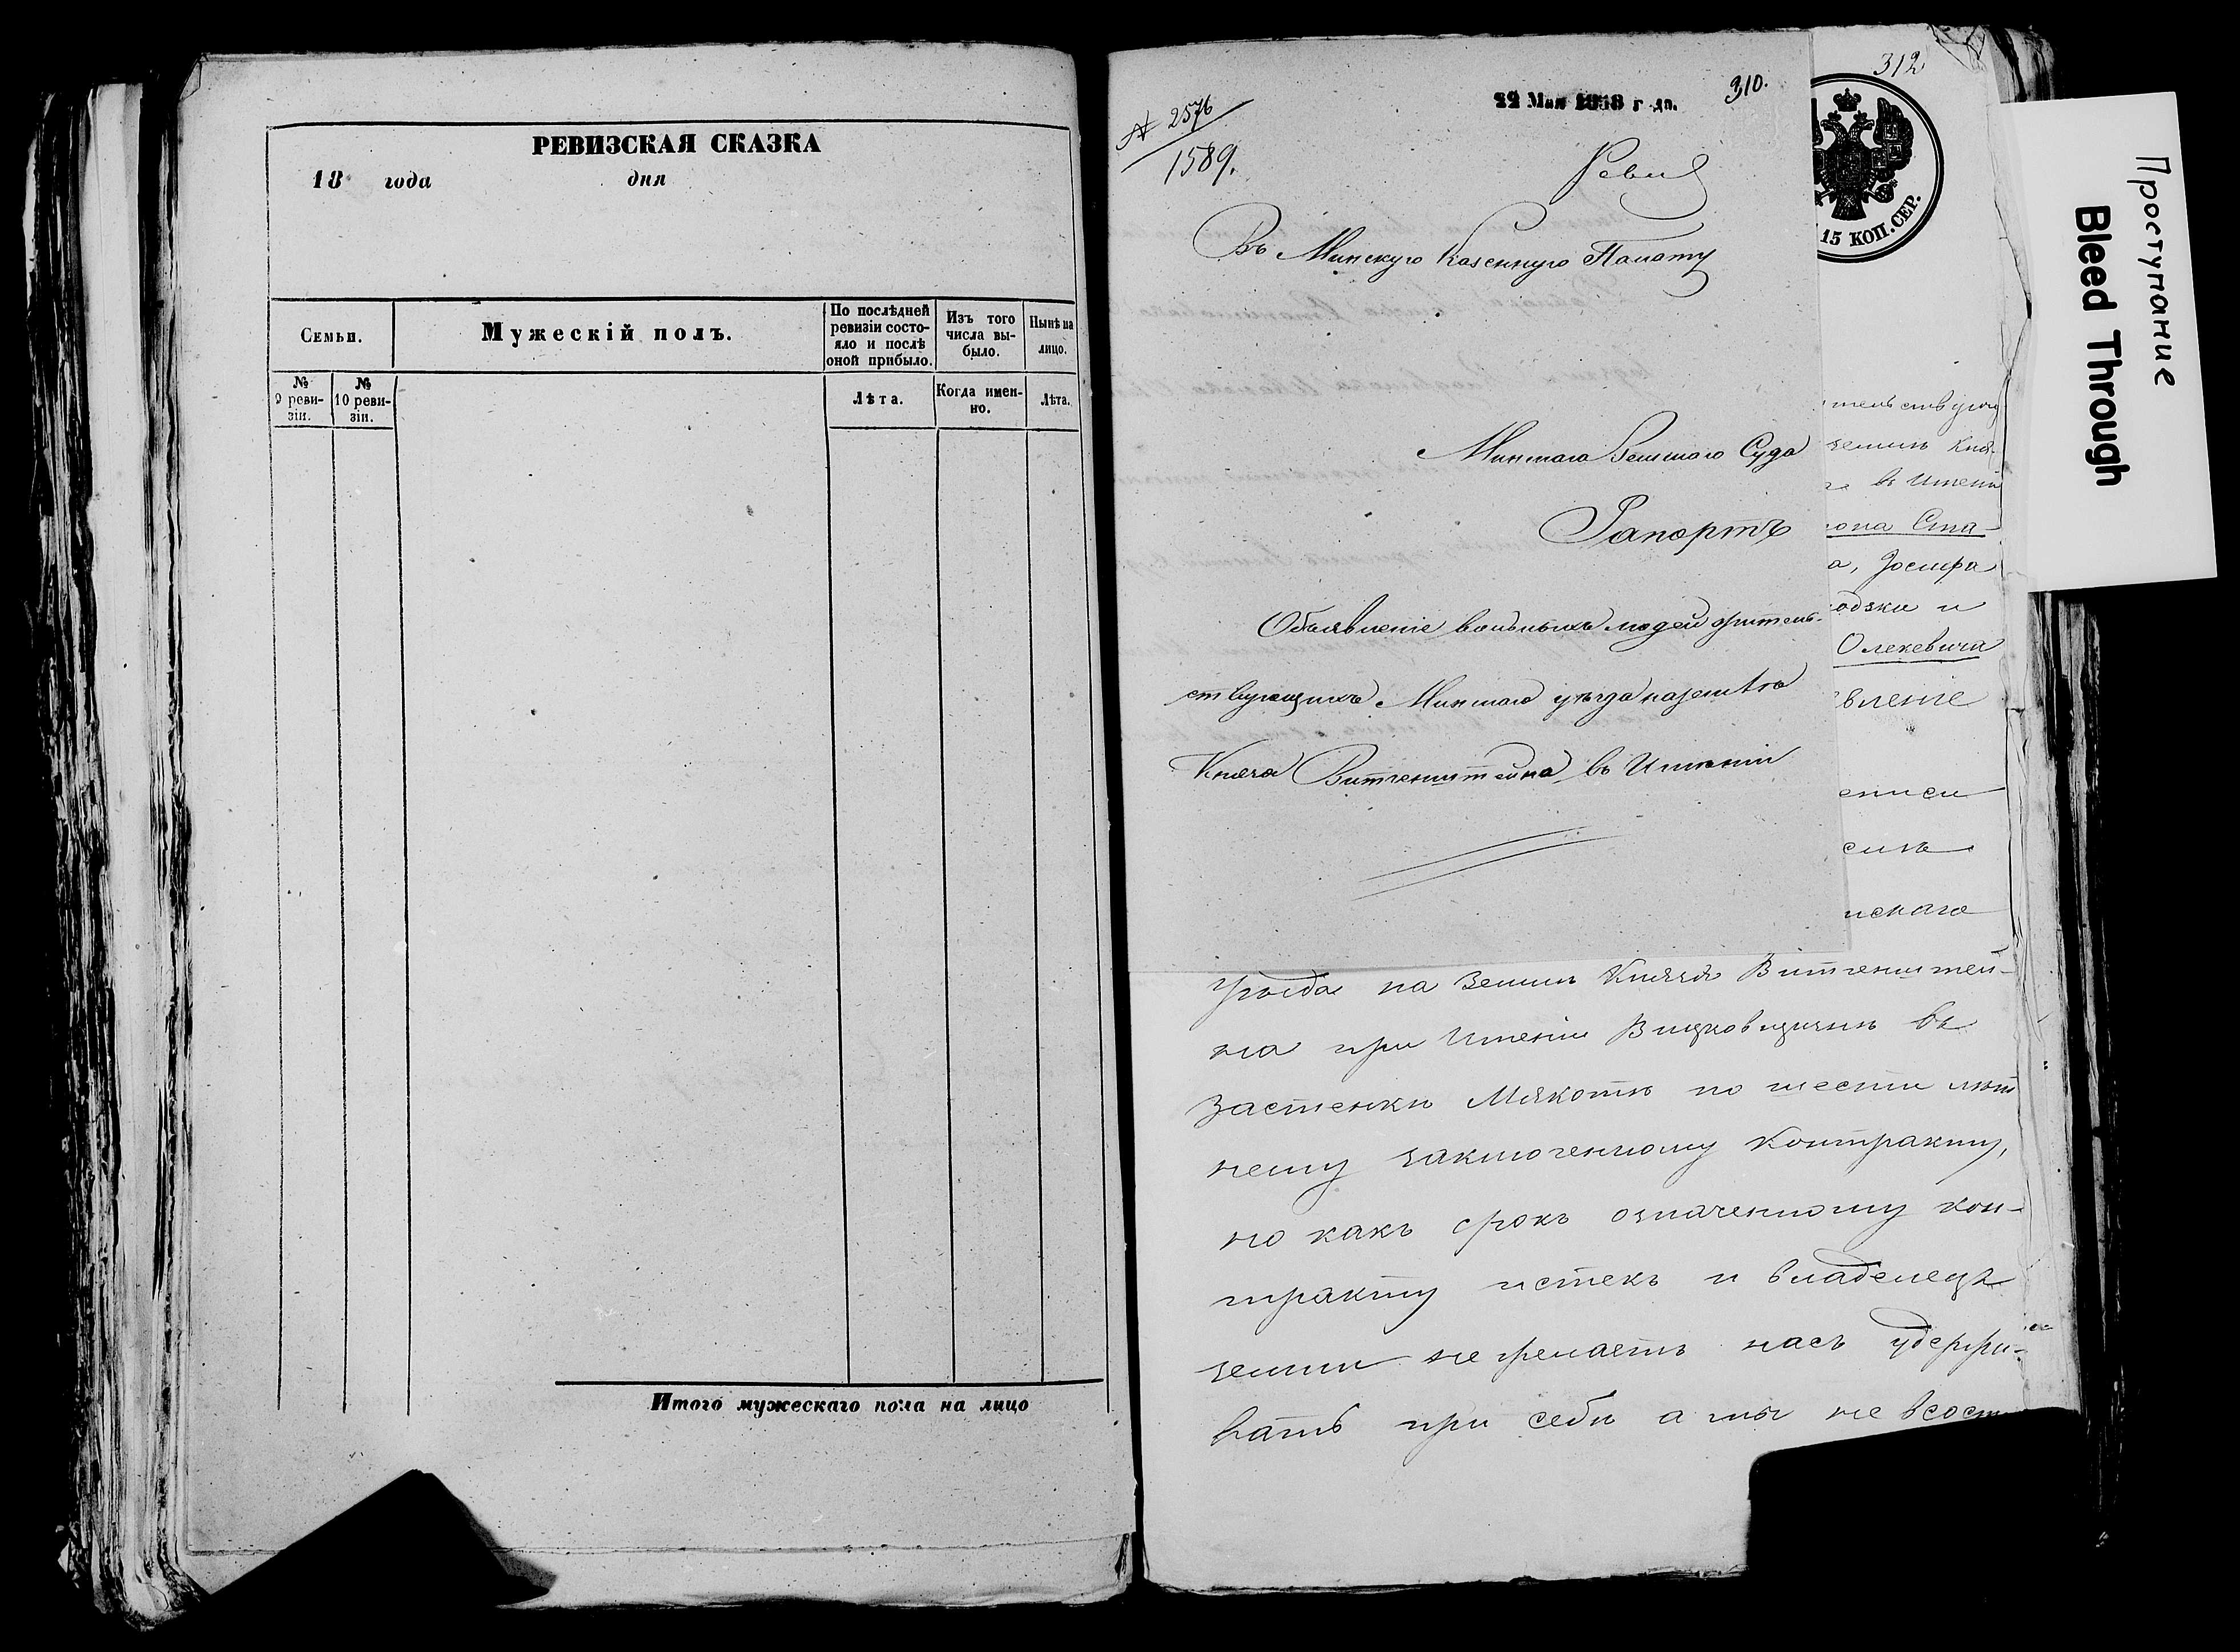 РЕВИЗСКАЯ СКАЗКА
18 года дня
Семьи.
Мужескій полъ.
По послѣдней ревизіи состо-
яло и послѣ
оной прибыло.
Изъ того
числа вы-
было.
Нынѣ на
лицо.
№
9 реви-
зіи.
№
10 реви-
зіи.
Лѣта.
Когда имен-
но.
Лѣта.
Итого мужескаго пола на лицо
№ 2576
1589.
22 Мая г да.
310.
Въ Минскую Казенную Палату
Минскаго Земскаго Суда
Рапортъ
Объявленіе вольныхъ людей житель-
ствующихъ Минскаго уѣзда на землѣ
Князя Витгенштейна въ Имѣніи
312
15 КОП. СЕР.
тельствую
землѣ Кня-
въ Имѣніи
Ста-
а, Іосифа
и
Олекевича
вленіе
скаго
Уѣзда на Землѣ Князя Витгенштей-
на при Имѣніи въ
Застенкѣ Мякотѣ по шести лѣт
нему заключенному Контракту,
но какъ срокъ означенному кон-
тракту истекъ и владелецъ
земли не желаетъ насъ удержи-
вать при себѣ а мы не
Проступание
Bleed Through